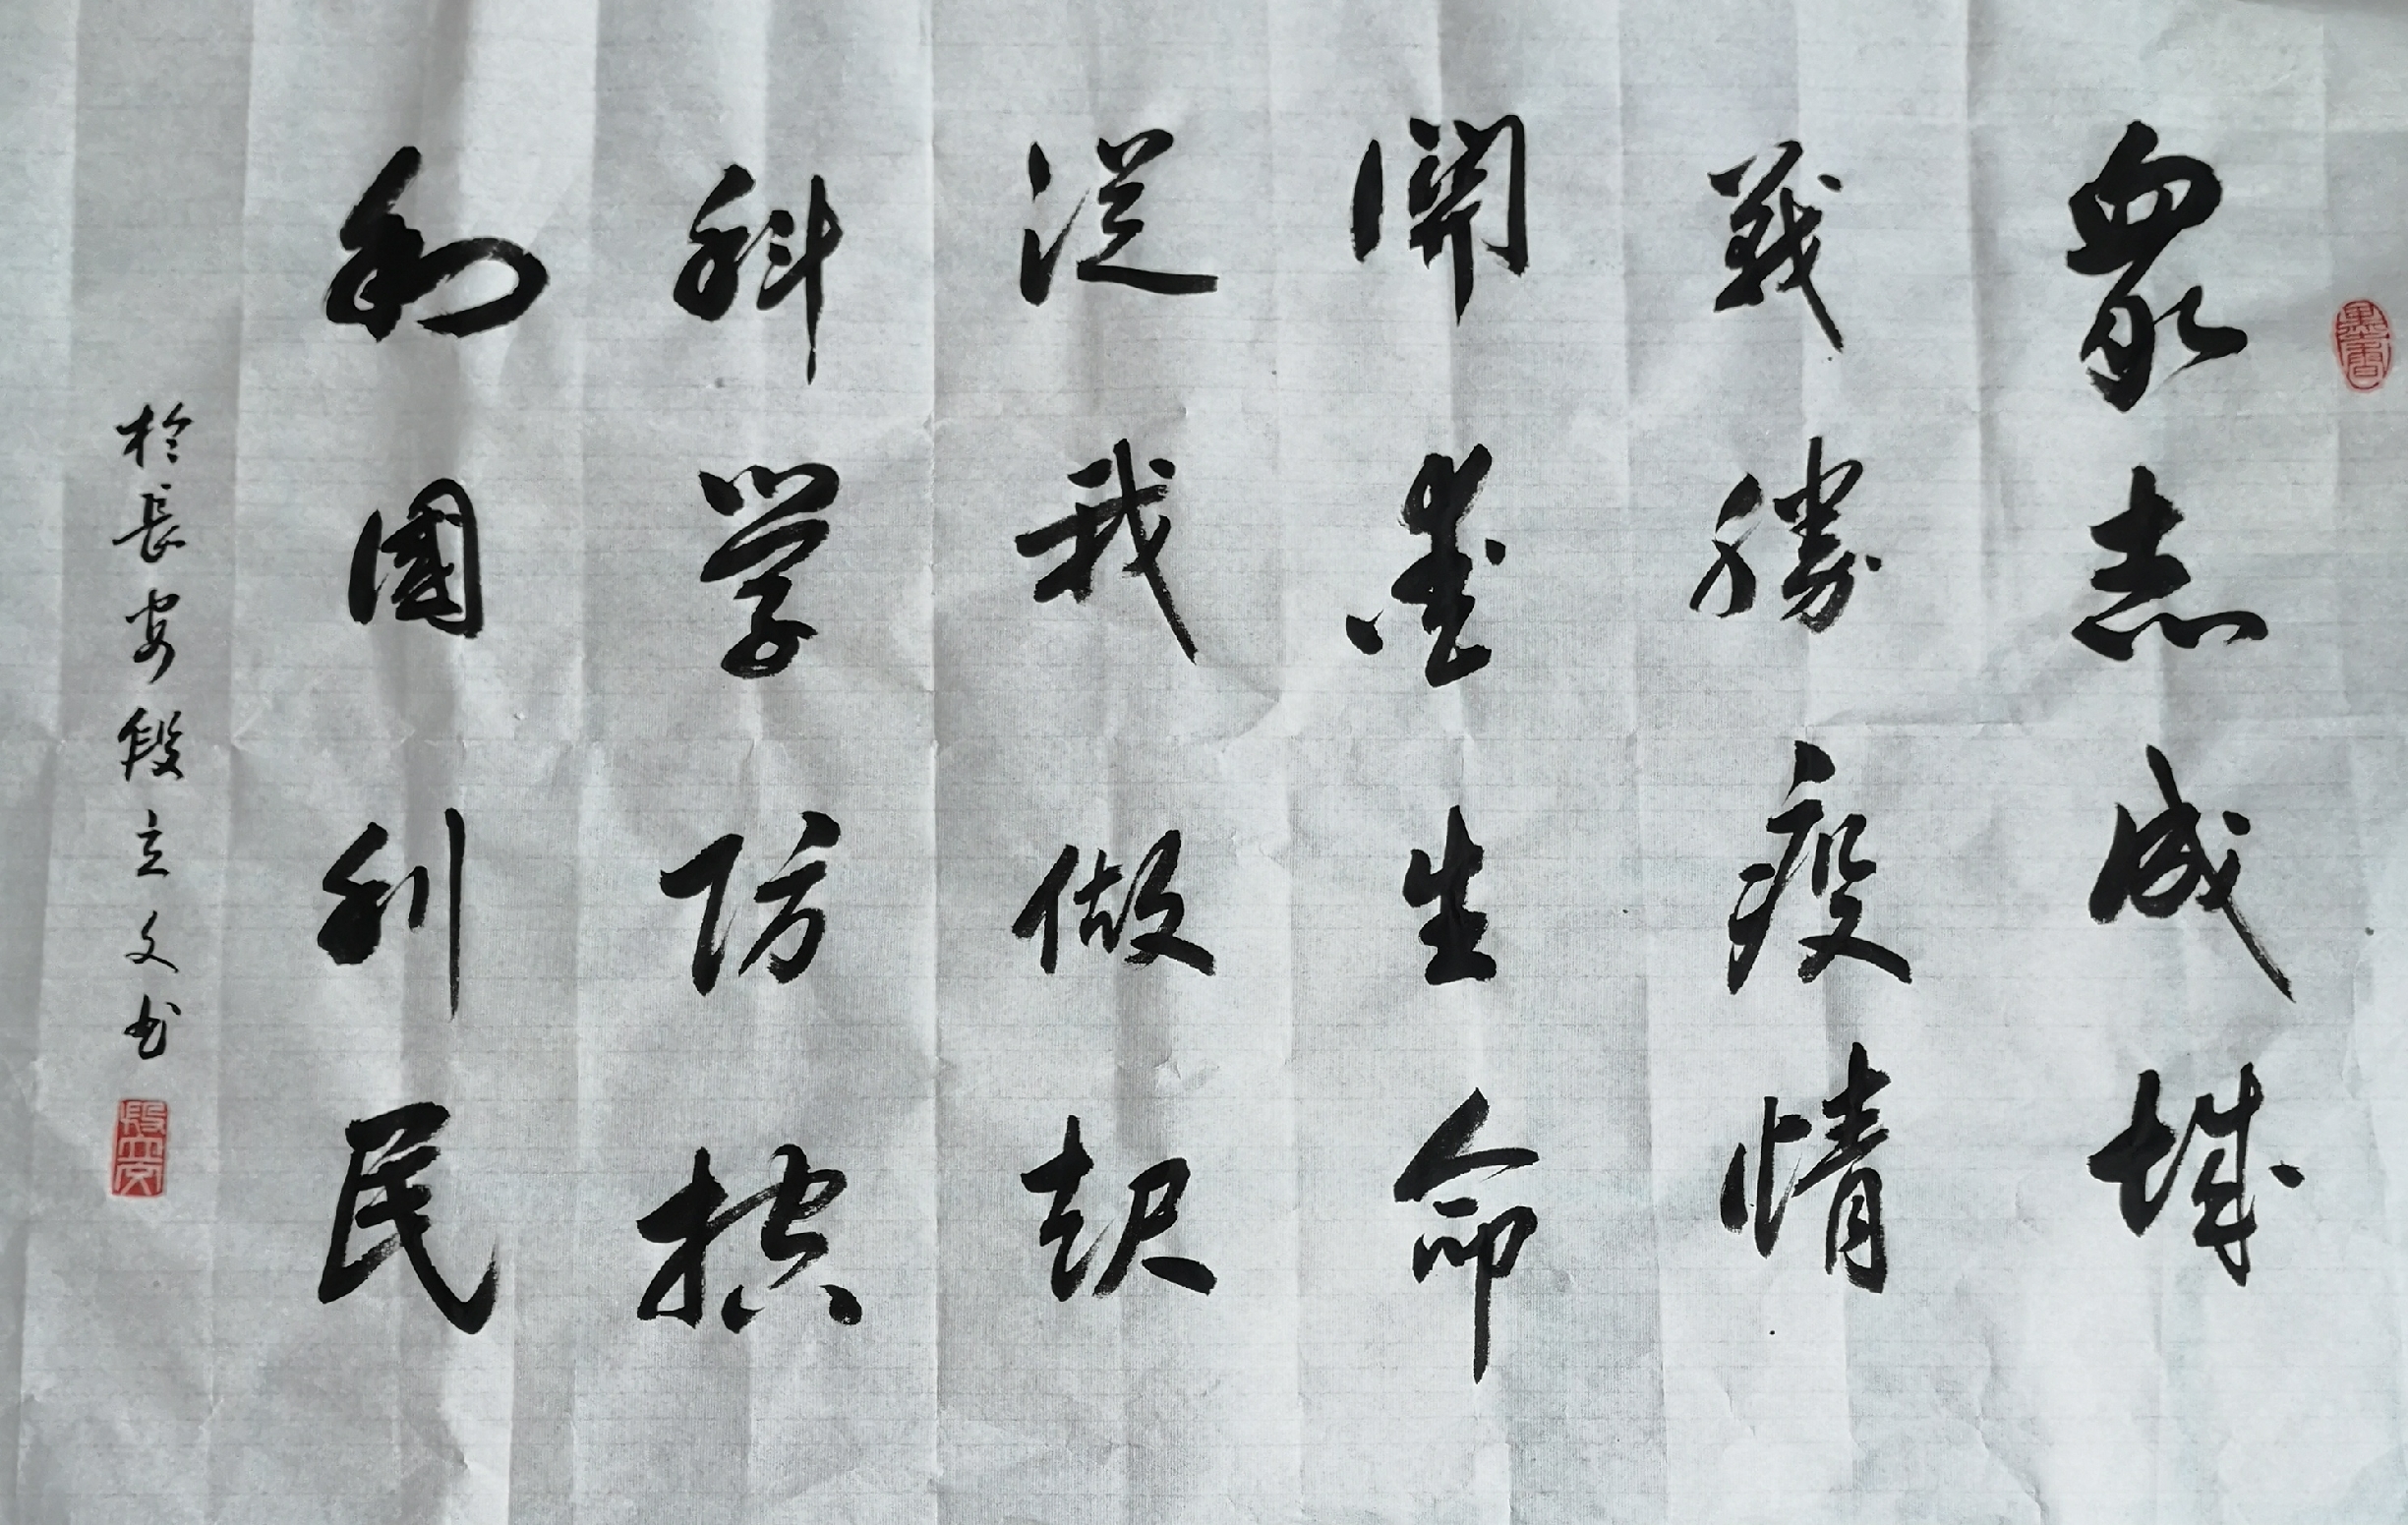 墨香
衆志成城
戰勝疫情
關愛生命
從我做起
科学防控
利國利民
於長安段立文书
段立文